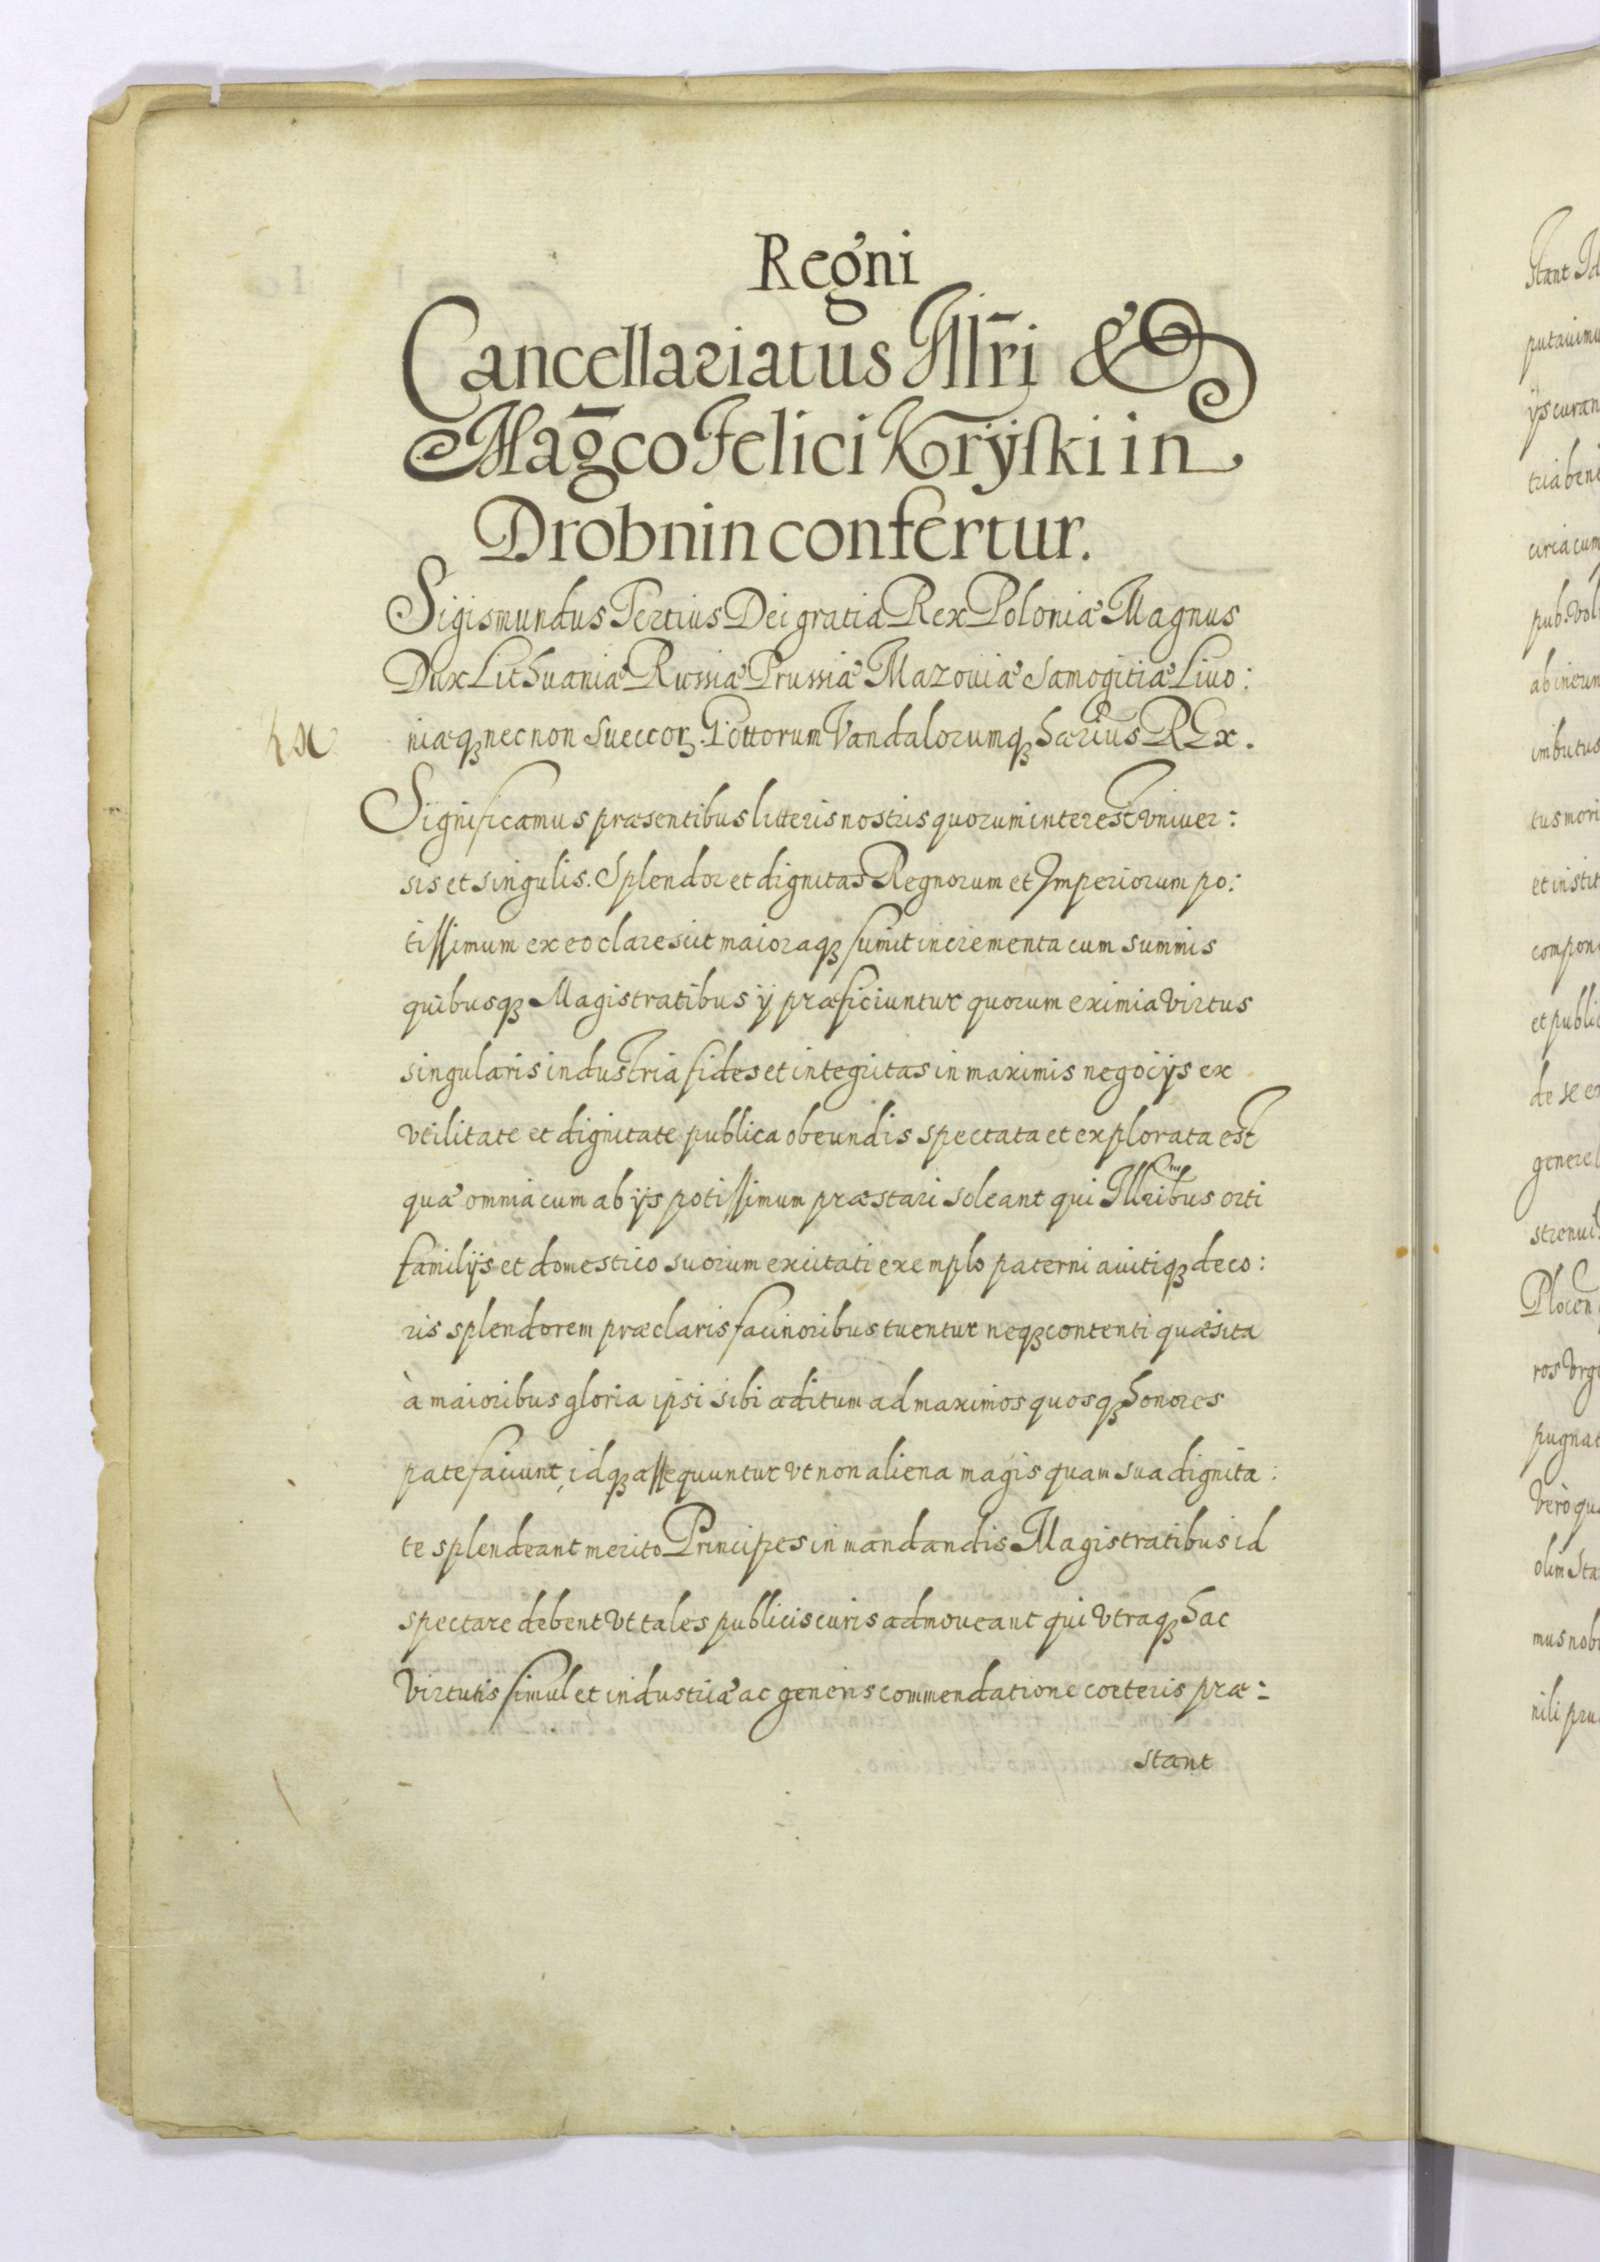 Regni
Cancellariatus Jllri &
Magco Felici Kryski in
Drobnin confertur.
Sigismundus Tertius Dei gratia Rex Poloniæ Magnus
Dux Lithuaniæ Russiæ Prussiæ Mazoviæ Samogitiæ Livo:
niæq; nec non Sueccor. Gottorum Vandalorumq; hærius REx.
Significamus præsentibus litteris nostris quorum interest vniver:
sis et singulis. Splendor et dignitas Regnorum et Jmperiorum po:
tissimum ex eo clarescit maioraq; sumit incrementa cum summis
quibusq; Magistratibus ij præficiuntur quorum eximia virtus
singularis industria fides et integritas in maximis negocijs ex
vtilitate et dignitate publica obeundis spectata et explorata est
quæ omnia cum ab ijs potissimum præstari soleant qui Jllribus orti
familijs et domestico suorum excitati exemplo paterni avitiq; deco:
ris splendorem præclaris facinoribus tuentur neq; contenti quæsita
à maioribus gloria ipsi sibi aditum ad maximos quosq; honores
patefaciunt, idq; assequuntur vt non aliena magis quam sua dignita:
te splendeant merito Principes in mandandis Magistratibus id
spectare debent vt tales publicis curis admoveant qui vtraq; hac
virtutis simul et industriæ ac generis commendatione cœteris præ:
stant
stant Jd
putavimu
ijs curan
tria bene
circa cum
pub: vol
ab ineun
imbutus
tus mori
et instit
compon
et public
de se ex
generel
strenui
Plocen
ros vrg
pugnat
Vero qu
olim Sta
mus nob
nili pru